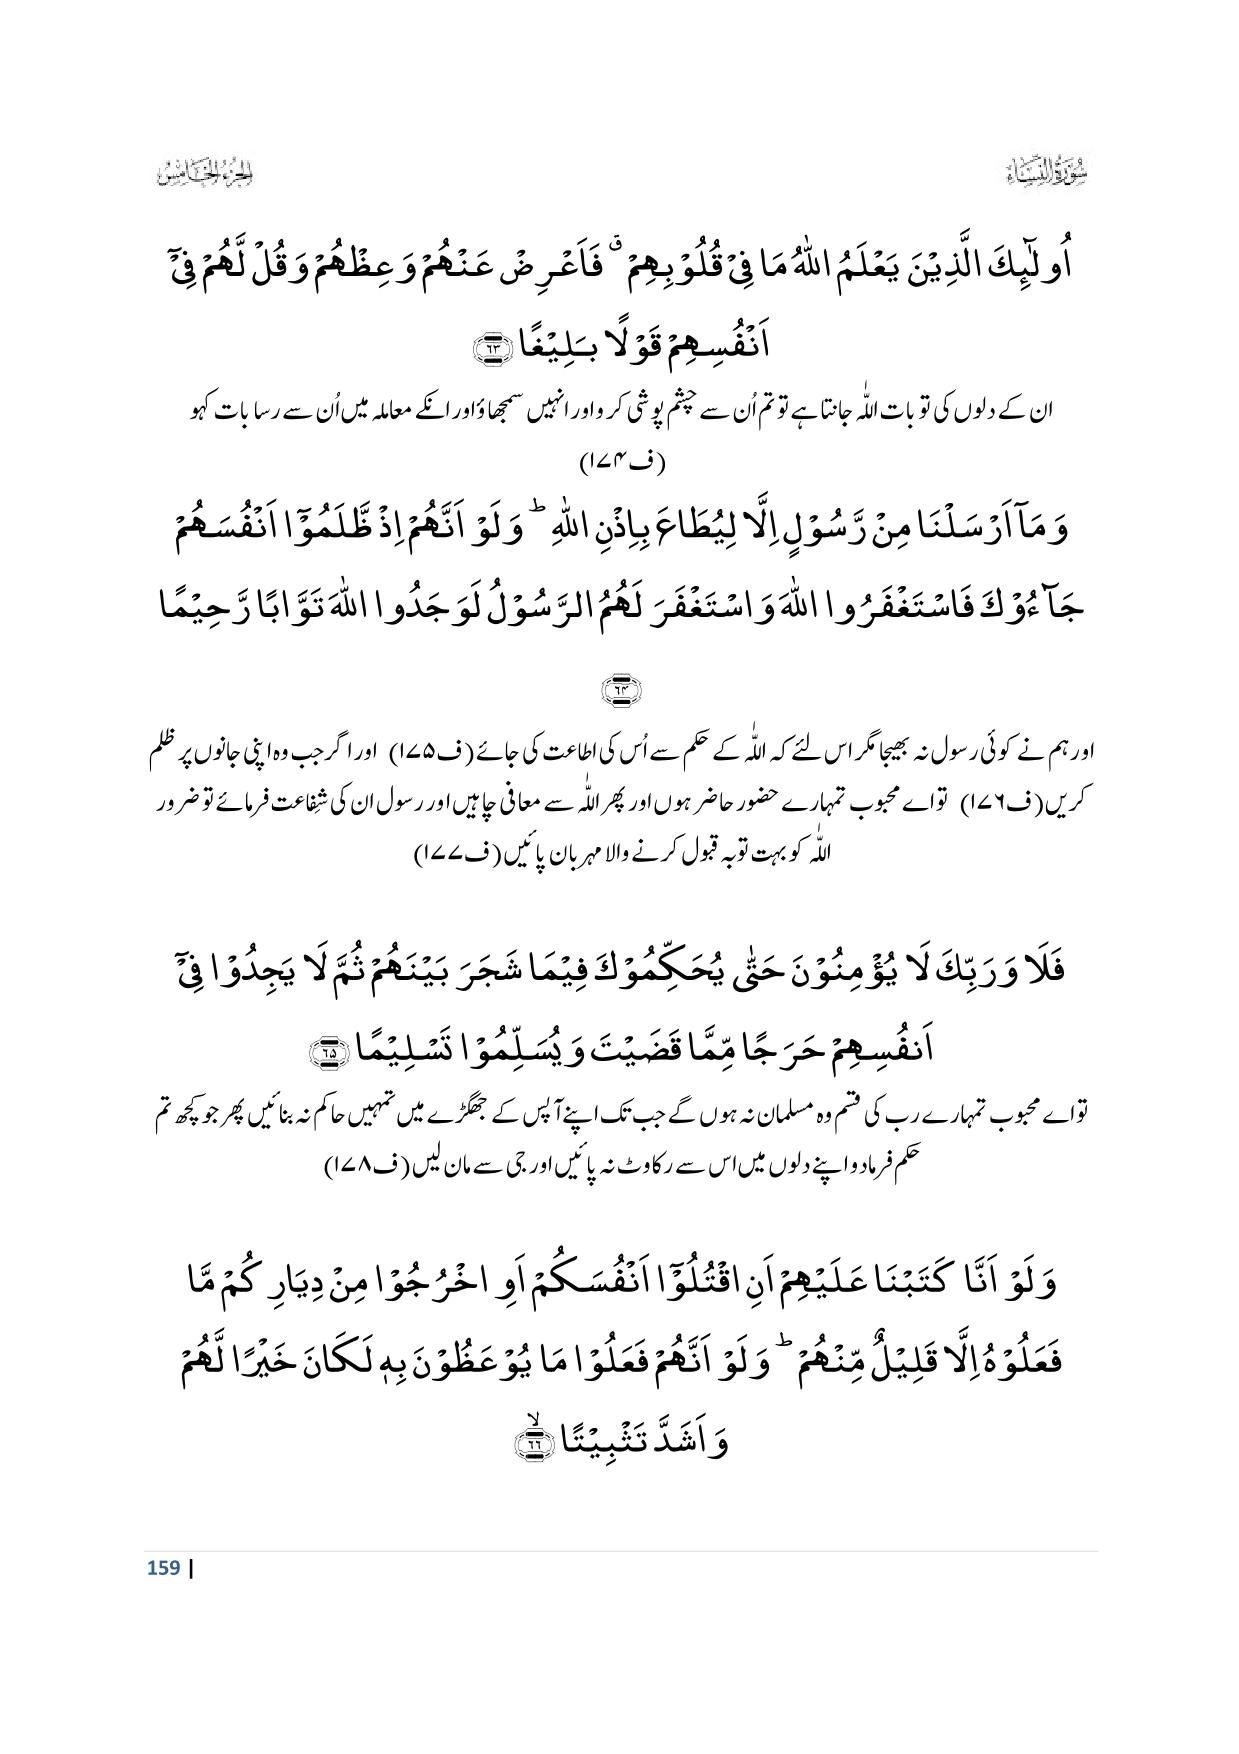 سُوْرَةُ النِّسَاء
الجزء الخامس
اُولٰٓئِكَ الَّذِيْنَ يَعْلَمُ اللّٰهُ مَا فِيْ قُلُوْبِهِمْ ۗ فَاَعْرِضْ عَنْهُمْ وَعِظْهُمْ وَقُلْ لَّهُمْ فِيْٓ
اَنْفُسِهِمْ قَوْلًا بَلِيْغًا ﴿۶۳﴾
ان کے دلوں کی تو بات اللّٰہ جانتا ہے تو تم اُن سے چشم پوشی کرو اور انہیں سمجھاؤ اور انکے معاملہ میں اُن سے رسا بات کہو
(ف۱۷۴)
وَمَآ اَرْسَلْنَا مِنْ رَّسُوْلٍ اِلَّا لِيُطَاعَ بِاِذْنِ اللّٰهِ ؕ وَلَوْ اَنَّهُمْ اِذْ ظَّلَمُوْٓا اَنْفُسَهُمْ
جَآءُوْكَ فَاسْتَغْفَرُوا اللّٰهَ وَاسْتَغْفَرَ لَهُمُ الرَّسُوْلُ لَوَجَدُوا اللّٰهَ تَوَّابًا رَّحِيْمًا
﴿۶۴﴾
اور ہم نے کوئی رسول نہ بھیجا مگر اس لئے کہ اللّٰہ کے حکم سے اُس کی اطاعت کی جائے (ف۱۷۵) اور اگر جب وہ اپنی جانوں پر ظلم
کریں (ف۱۷۶) تو اے محبوب تمہارے حضور حاضر ہوں اور پھر اللّٰہ سے معافی چاہیں اور رسول ان کی شِفاعت فرمائے تو ضرور
اللّٰہ کو بہت توبہ قبول کرنے والا مہربان پائیں (ف۱۷۷)
فَلَا وَرَبِّكَ لَا يُؤْمِنُوْنَ حَتّٰى يُحَكِّمُوْكَ فِيْمَا شَجَرَ بَيْنَهُمْ ثُمَّ لَا يَجِدُوْا فِيْٓ
اَنفُسِهِمْ حَرَجًا مِّمَّا قَضَيْتَ وَيُسَلِّمُوْا تَسْلِيْمًا ﴿۶۵﴾
تو اے محبوب تمہارے رب کی قسم وہ مسلمان نہ ہوں گے جب تک اپنے آپس کے جھگڑے میں تمہیں حاکم نہ بنائیں پھر جو کچھ تم
حکم فرما دو اپنے دلوں میں اس سے رکاوٹ نہ پائیں اور جی سے مان لیں (ف۱۷۸)
وَلَوْ اَنَّا كَتَبْنَا عَلَيْهِمْ اَنِ اقْتُلُوْٓا اَنْفُسَكُمْ اَوِ اخْرُجُوْا مِنْ دِيَارِكُمْ مَّا
فَعَلُوْهُ اِلَّا قَلِيْلٌ مِّنْهُمْ ؕ وَلَوْ اَنَّهُمْ فَعَلُوْا مَا يُوْعَظُوْنَ بِهٖ لَكَانَ خَيْرًا لَّهُمْ
وَاَشَدَّ تَثْبِيْتًا ۙ﴿۶۶﴾
159 |